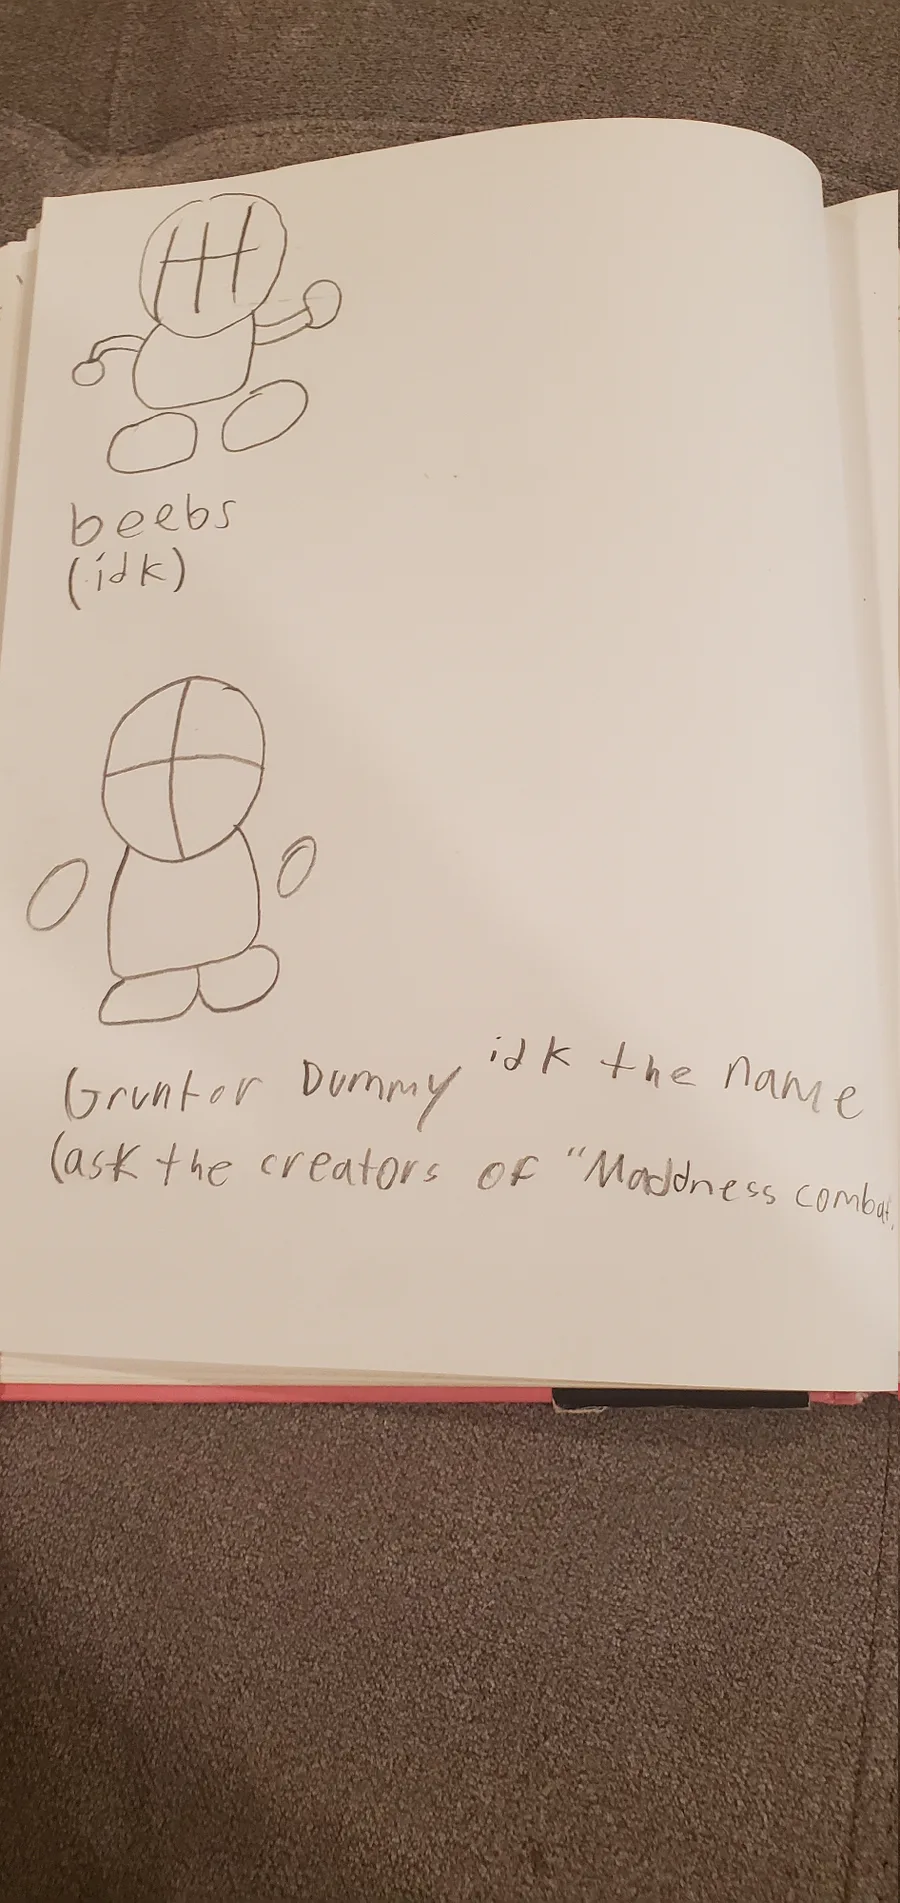 beebs
(idk)
Gruntor Dummy idk the name
(ask the creators of "Maddness combat.